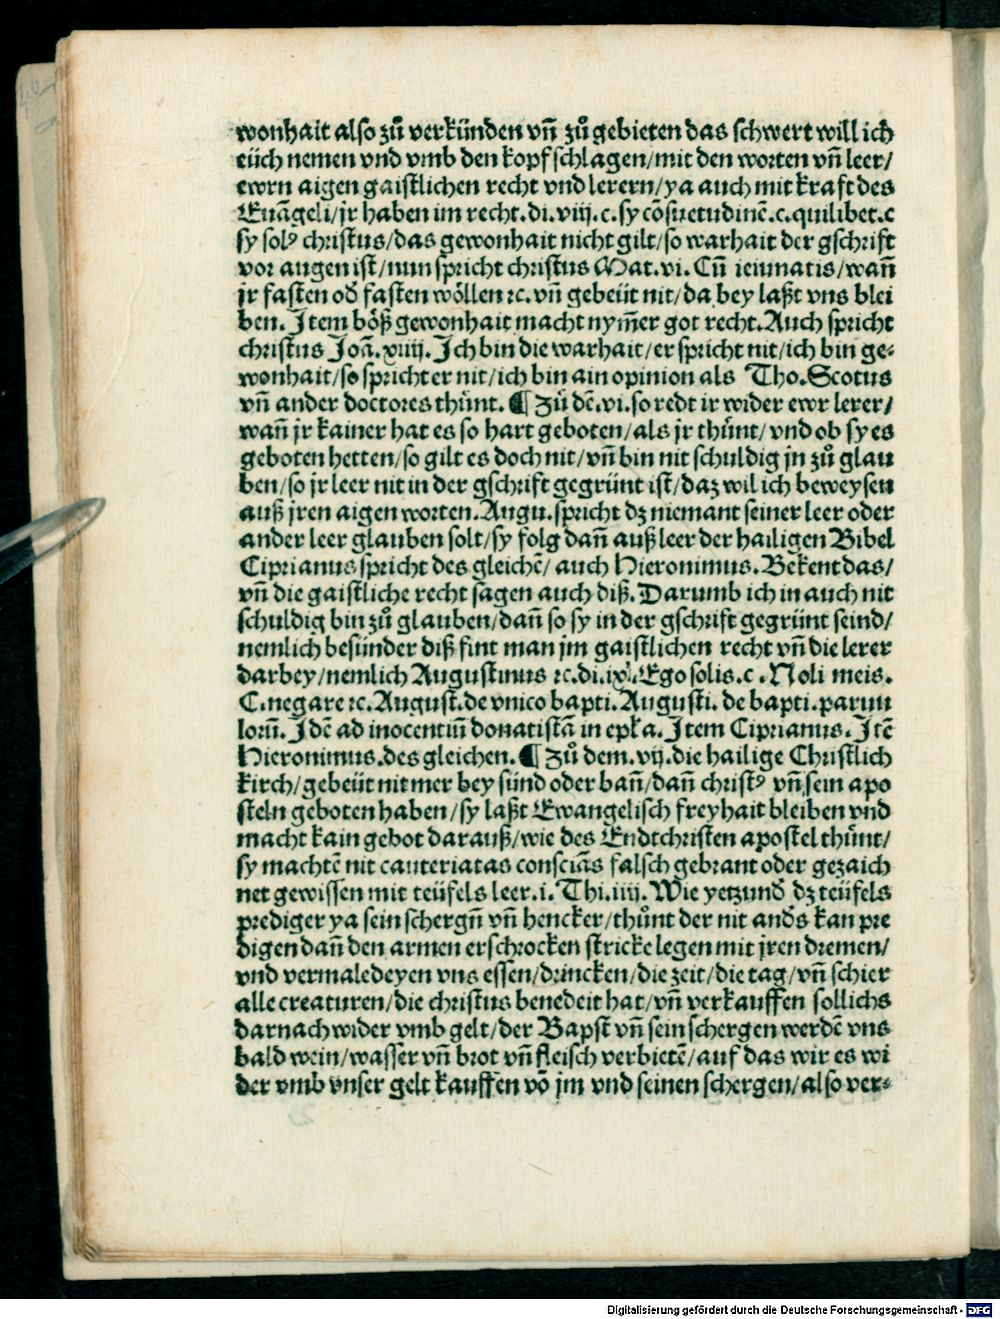 wonhait also zů verkünden vñ zů gebieten das schwert will ich
eüch nemen vnd vmb den kopf schlagen/mit den worten vñ leer/
ewrn aigen gaistlichen recht vnd lerern/ya auch mit kraft des
Euãgeli/jr haben im recht.di.viij.c.sy cõsuetudinẽ.c.quilibet.c
sy solꝰ christus/das gewonhait nicht gilt/so warhait der gschrift
vor augen ist/nun spricht christus Mat.vi. Cũ ieiunatis/wañ
jr fasten od̃ fasten wöllen ⁊c.vñ gebeüt nit/da bey laßt vns blei
ben. Item böß gewonhait macht nym̃er got recht.Auch spricht
christus Joã.xiiij. Ich bin die warhait/er spricht nit/ich bin ge⸗
wonhait/so spricht er nit/ich bin ain opinion als Tho.Scotus
vñ ander doctores thůnt. ¶ Zů dẽ.vi.so redt ir wider ewr lerer/
wañ jr kainer hat es so hart geboten/als jr thůnt/vnd ob sy es
geboten hetten/so gilt es doch nit/vñ bin nit schuldig jn zů glau
ben/so jr leer nit in der gschrift gegrünt ist/daz wil ich beweysen
auß jren aigen worten.Augu.spricht dz niemant seiner leer oder
ander leer glauben solt/sy folg dañ auß leer der hailigen Bibel
Ciprianus spricht des gleichẽ/auch Hieronimus.Bekent das/
vñ die gaistliche recht sagen auch diß.Darumb ich in auch nit
schuldig bin zů glauben/dañ so sy in der gschrift gegrünt seind/
nemlich besünder diß fint man jm gaistlichen recht vñ die lerer
darbey/nemlich Augustinus ⁊c.di.ix.Ego solis.c.Noli meis.
C.negare ⁊c.August.de vnico bapti.Augusti.de bapti.paruu
lorũ.Idẽ ad inocentiũ donatistã in epła.Item Ciprianus.Itẽ
Hieronimus.des gleichen. ¶ Zů dem.vij.die hailige Christlich
kirch/gebeüt nit mer bey sünd oder bañ/dañ christꝰ vñ sein apo
steln geboten haben/sy laßt Ewangelisch freyhait bleiben vnd
macht kain gebot darauß/wie des Endtchristen apostel thůnt/
sy machtẽ nit cauteriatas consciãs falsch gebrant oder gezaich
net gewissen mit teüfels leer.i.Thi.iiij.Wie yetzund̃ dz teüfels
prediger ya sein schergñ vñ hencker/thůnt der nit and̃s kan pre
digen dañ den armen erschrocken stricke legen mit jren dremen/
vnd vermaledeyen vns essen/drincken/die zeit/die tag/vñ schier
alle creaturen/die christus benedeit hat/vñ verkauffen sollichs
darnach wider vmb gelt/der Bapst vñ sein schergen werdẽ vns
bald wein/wasser vñ brot vñ fleisch verbietẽ/auf das wir es wi
der vmb vnser gelt kauffen võ jm vnd seinen schergen/also ver⸗
Digitalisierung gefördert durch die Deutsche Forschungsgemeinschaft - DFG